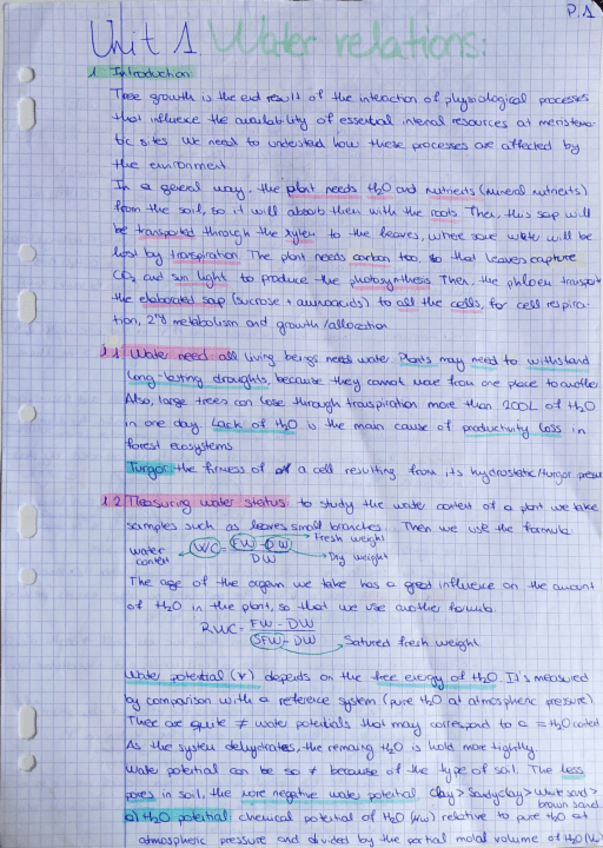 P.1
Unit 1 Water relations:
1. Introduction:
Tree growth is the end result of the interaction of physiological processes
that influence the availability of essential internal resources at meristema-
tic sites. We need to understand how these processes are affected by
the environment.
In a general way, the plant needs H2O and nutrients (mineral nutrients)
from the soil, so it will absorb them with the roots. Then, this sap will
be transported through the xylem to the leaves, where some water will be
lost by transpiration. The plant needs carbon too, so that leaves capture
CO2 and sun light to produce the photosynthesis. Then, the phloem transport
the elaborated sap (sucrose + aminoacids) to all the cells, for cell respira-
tion, 2nd metabolism and growth/allocation.
1.1 Water need: all living beings needs water. Plants may need to withstand
long-lasting droughts, because they cannot move from one place to another.
Also, large trees can lose through transpiration more than 200L of H2O
in one day. Lack of H2O is the main cause of productivity loss in
forest ecosystems.
Turgor: the firmness of a cell resulting from its hydrostatic/turgor pressure
1.2 Measuring water status: to study the water content of a plant we take
samples such as leaves small branches. Then we use the formula
water content WC = FW - DW / DW Fresh weight Dry weight
The age of the organ we take has a great influence on the amount
of H2O in the plant, so that we use another formula.
RWC = FW - DW / SFW - DW Satured fresh weight
Water potential (Ψ) depends on the free energy of H2O. It's measured
by comparison with a reference system (pure H2O at atmospheric pressure).
There are quite ≠ water potentials that may correspond to a = H2O content
As the system dehydrates, the remaing H2O is hold more tightly.
Water potential can be so ≠ because of the type of soil. The less
pores in soil, the more negative water potential. Clay > Sandyclay > White sand >
brown sand.
a) H2O potential: chemical potential of H2O (μw) relative to pure H2O at
atmospheric pressure and divided by the partial molal volume of H2O (Vw)